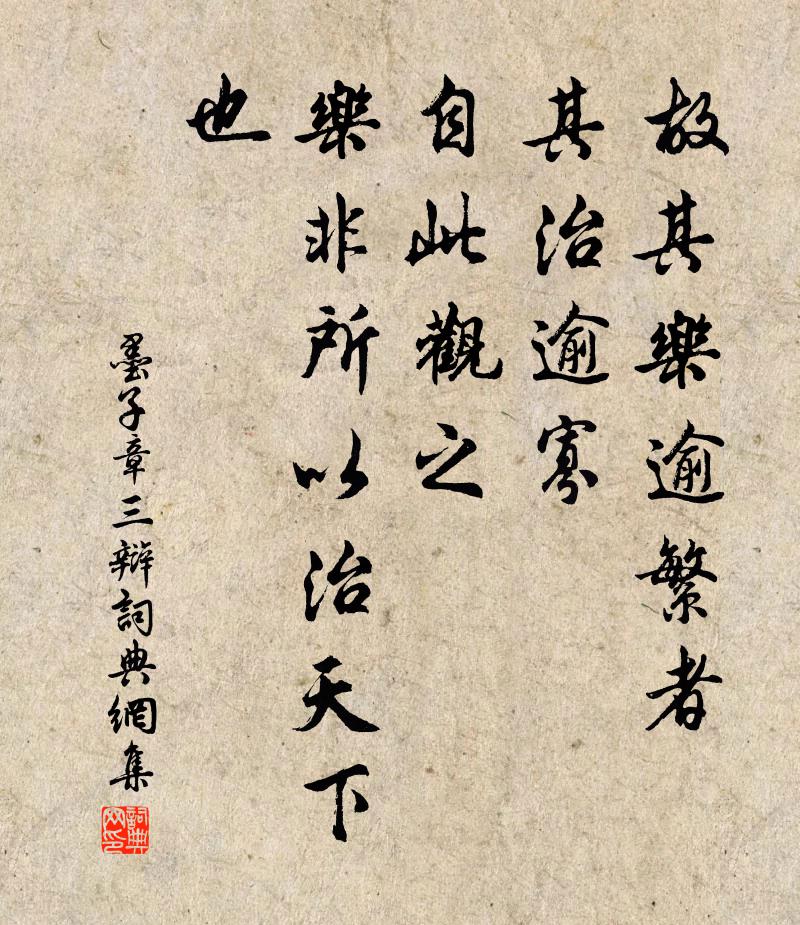 故其樂逾繁者
其治逾寡
自此觀之
樂非所以治天下
也
墨子章三辯詞典網集
詞典
网印